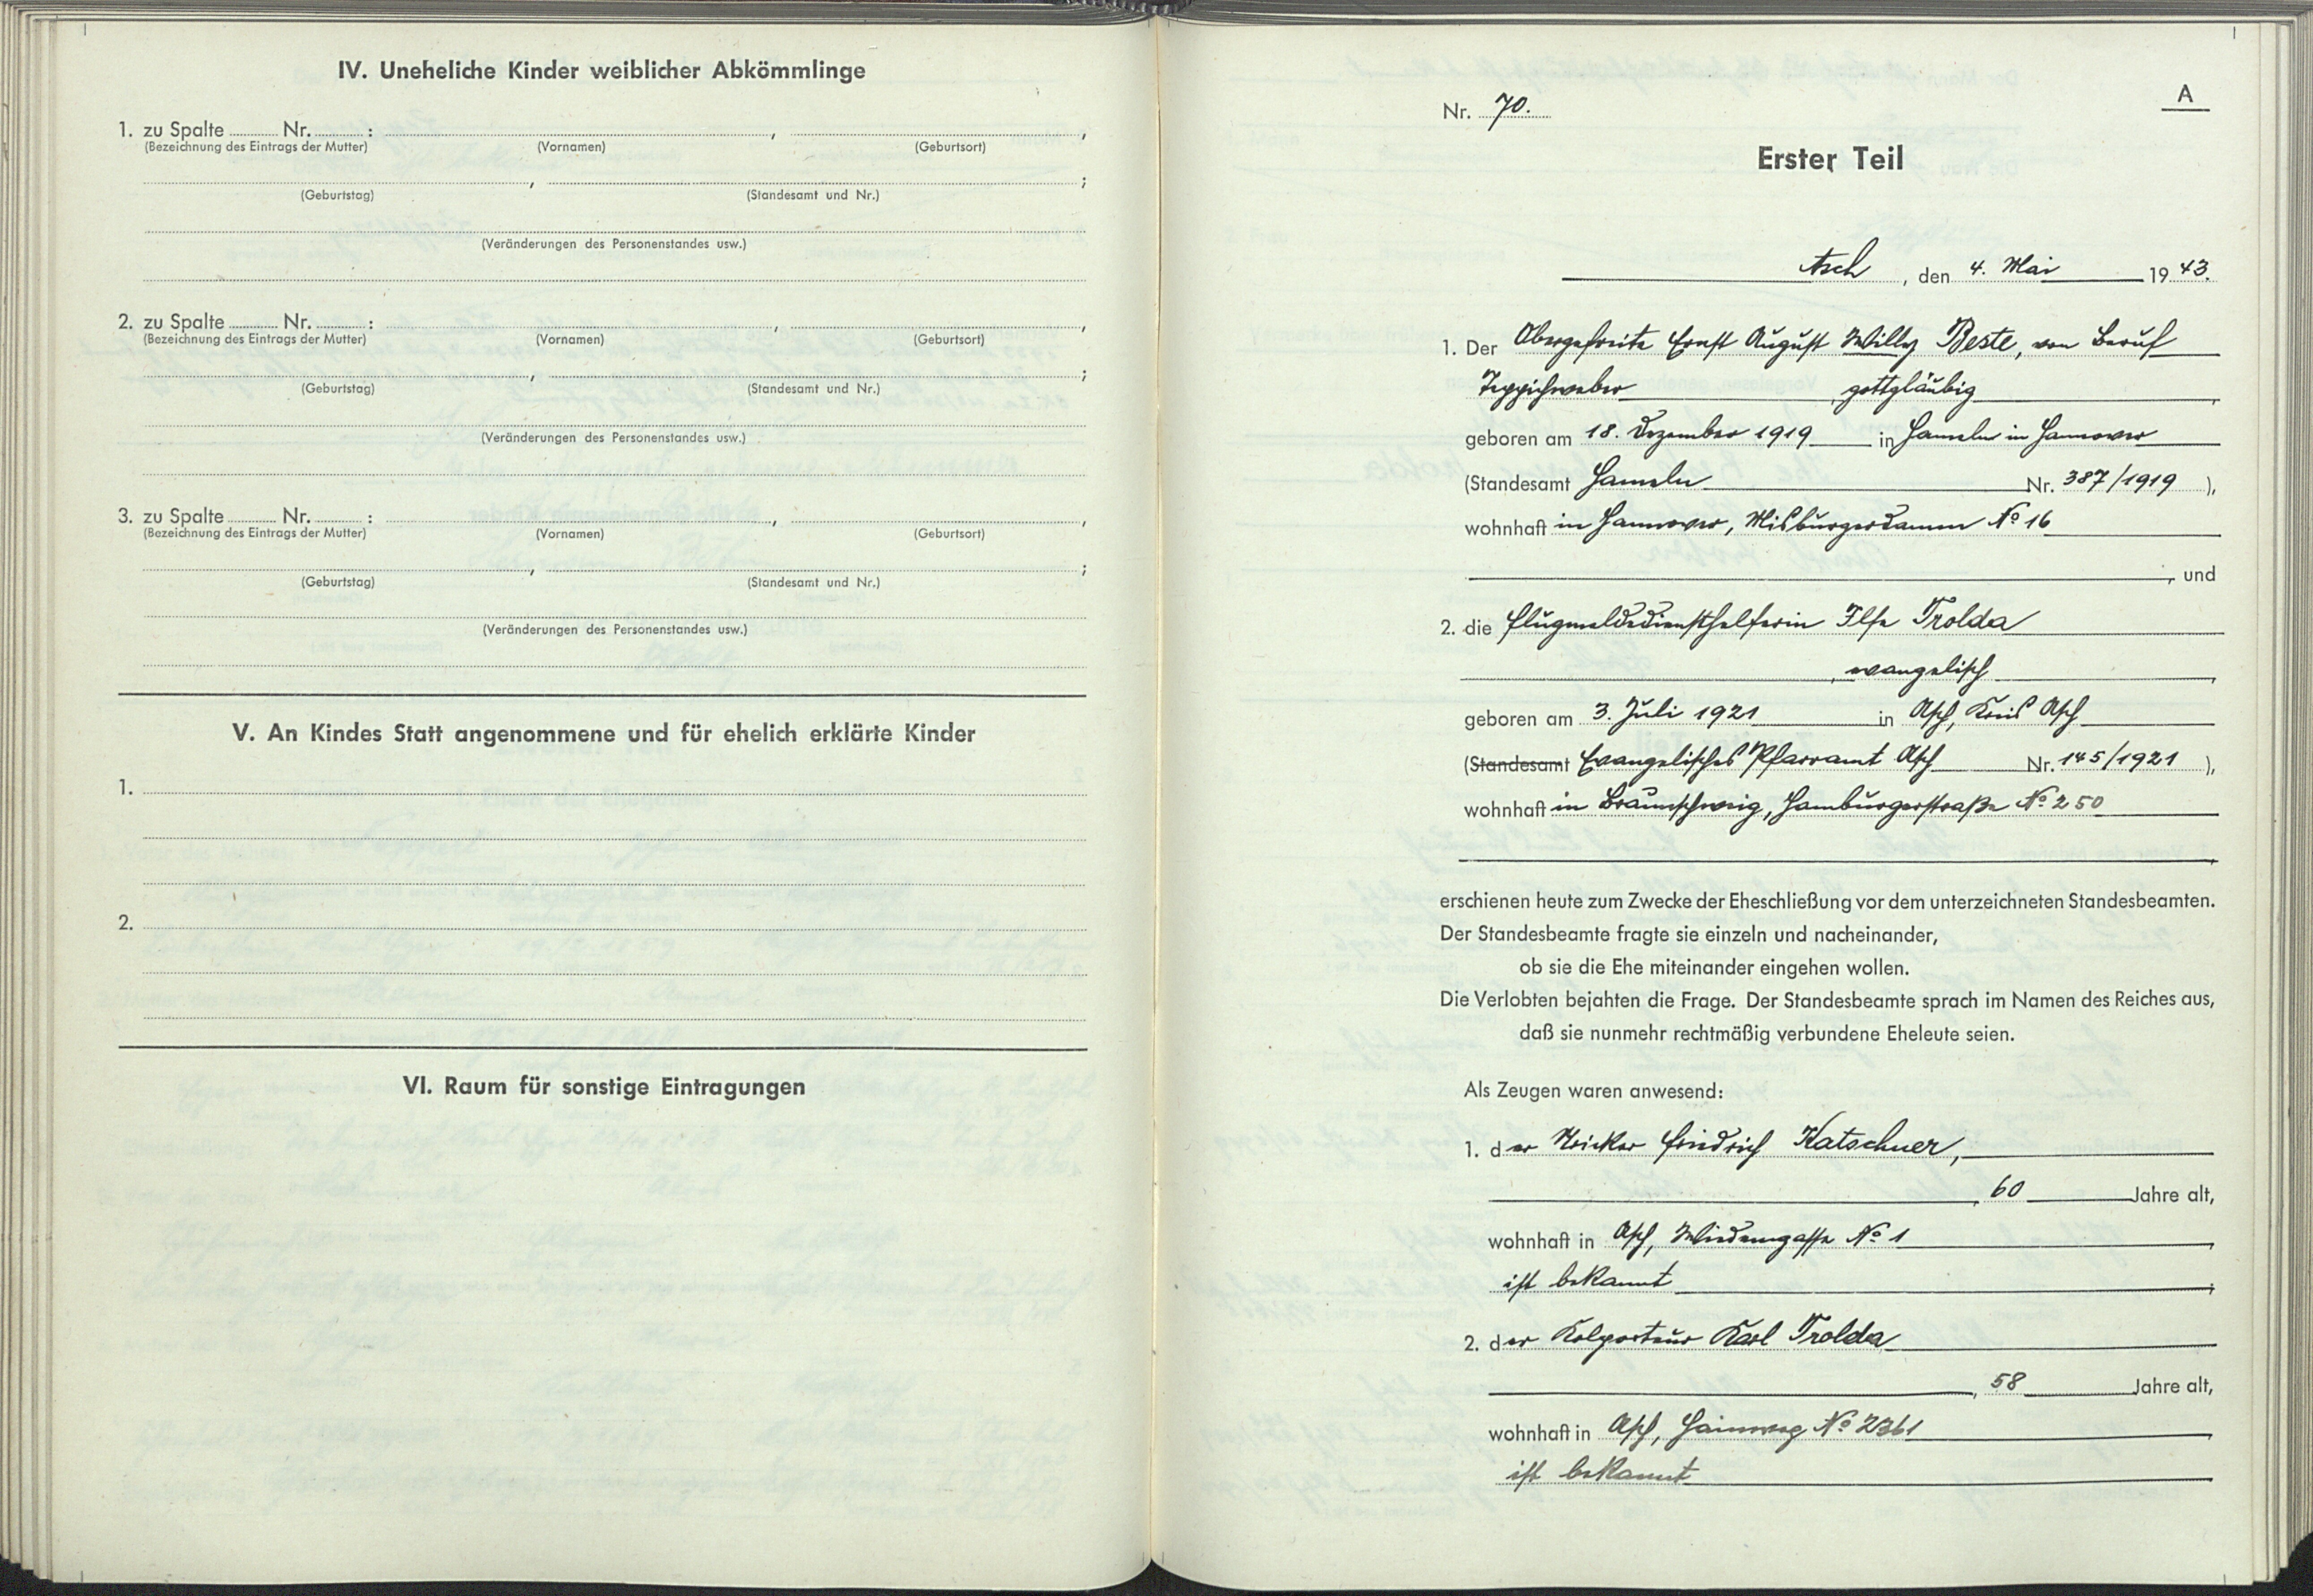 IV. Uneheliche Kinder weiblicher Abkömmlinge
1. zu Spalte Nr. : , ,
(Bezeichnung des Eintrags der Mutter) (Vornamen) (Geburtsort)
, ;
(Geburtstag) (Standesamt und Nr.)
(Veränderungen des Personenstandes usw.)
2. zu Spalte Nr. : , ,
(Bezeichnung des Eintrags der Mutter) (Vornamen) (Geburtsort)
, ;
(Geburtstag) (Standesamt und Nr.)
(Veränderungen des Personenstandes usw.)
3. zu Spalte Nr. : , ,
(Bezeichnung des Eintrags der Mutter) (Vornamen) (Geburtsort)
, ;
(Geburtstag) (Standesamt und Nr.)
(Veränderungen des Personenstandes usw.)
V. An Kindes Statt angenommene und für ehelich erklärte Kinder
1.
2.
VI. Raum für sonstige Eintragungen
A
Nr. 70.
Erster Teil
Asch, den 4. Mai 1943.
1. Der Obergefreite Ernst August Willy Beste, von Beruf
Teppichweber, gottgläubig,
geboren am 18. Dezember 1919 in Hameln in Hannover
(Standesamt Hameln Nr. 387/1919),
wohnhaft in Hannover, Misburgerdamm No 16
, und
2. die Flugmeldediensthelferin Ilse Trolda
, evangelisch,
geboren am 3. Juli 1921 in Asch, Kreis Asch
(Standesamt Evangelisches Pfarramt Asch Nr. 145/1921),
wohnhaft in Braunschweig, Hamburgerstraße No 250
,
erschienen heute zum Zwecke der Eheschließung vor dem unterzeichneten Standesbeamten.
Der Standesbeamte fragte sie einzeln und nacheinander,
ob sie die Ehe miteinander eingehen wollen.
Die Verlobten bejahten die Frage. Der Standesbeamte sprach im Namen des Reiches aus,
daß sie nunmehr rechtmäßig verbundene Eheleute seien.
Als Zeugen waren anwesend:
1. der Wirker Friedrich Katschner,
, 60 Jahre alt,
wohnhaft in Asch, Widemgasse No 1,
ist bekannt;
2. der Kolporteur Karl Trolda
, 58 Jahre alt,
wohnhaft in Asch, Hainweg No 2361,
ist bekannt